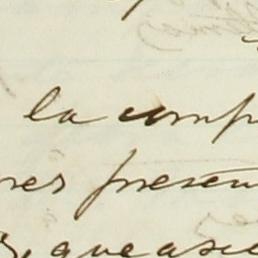 la comp
res presen
s, que asie